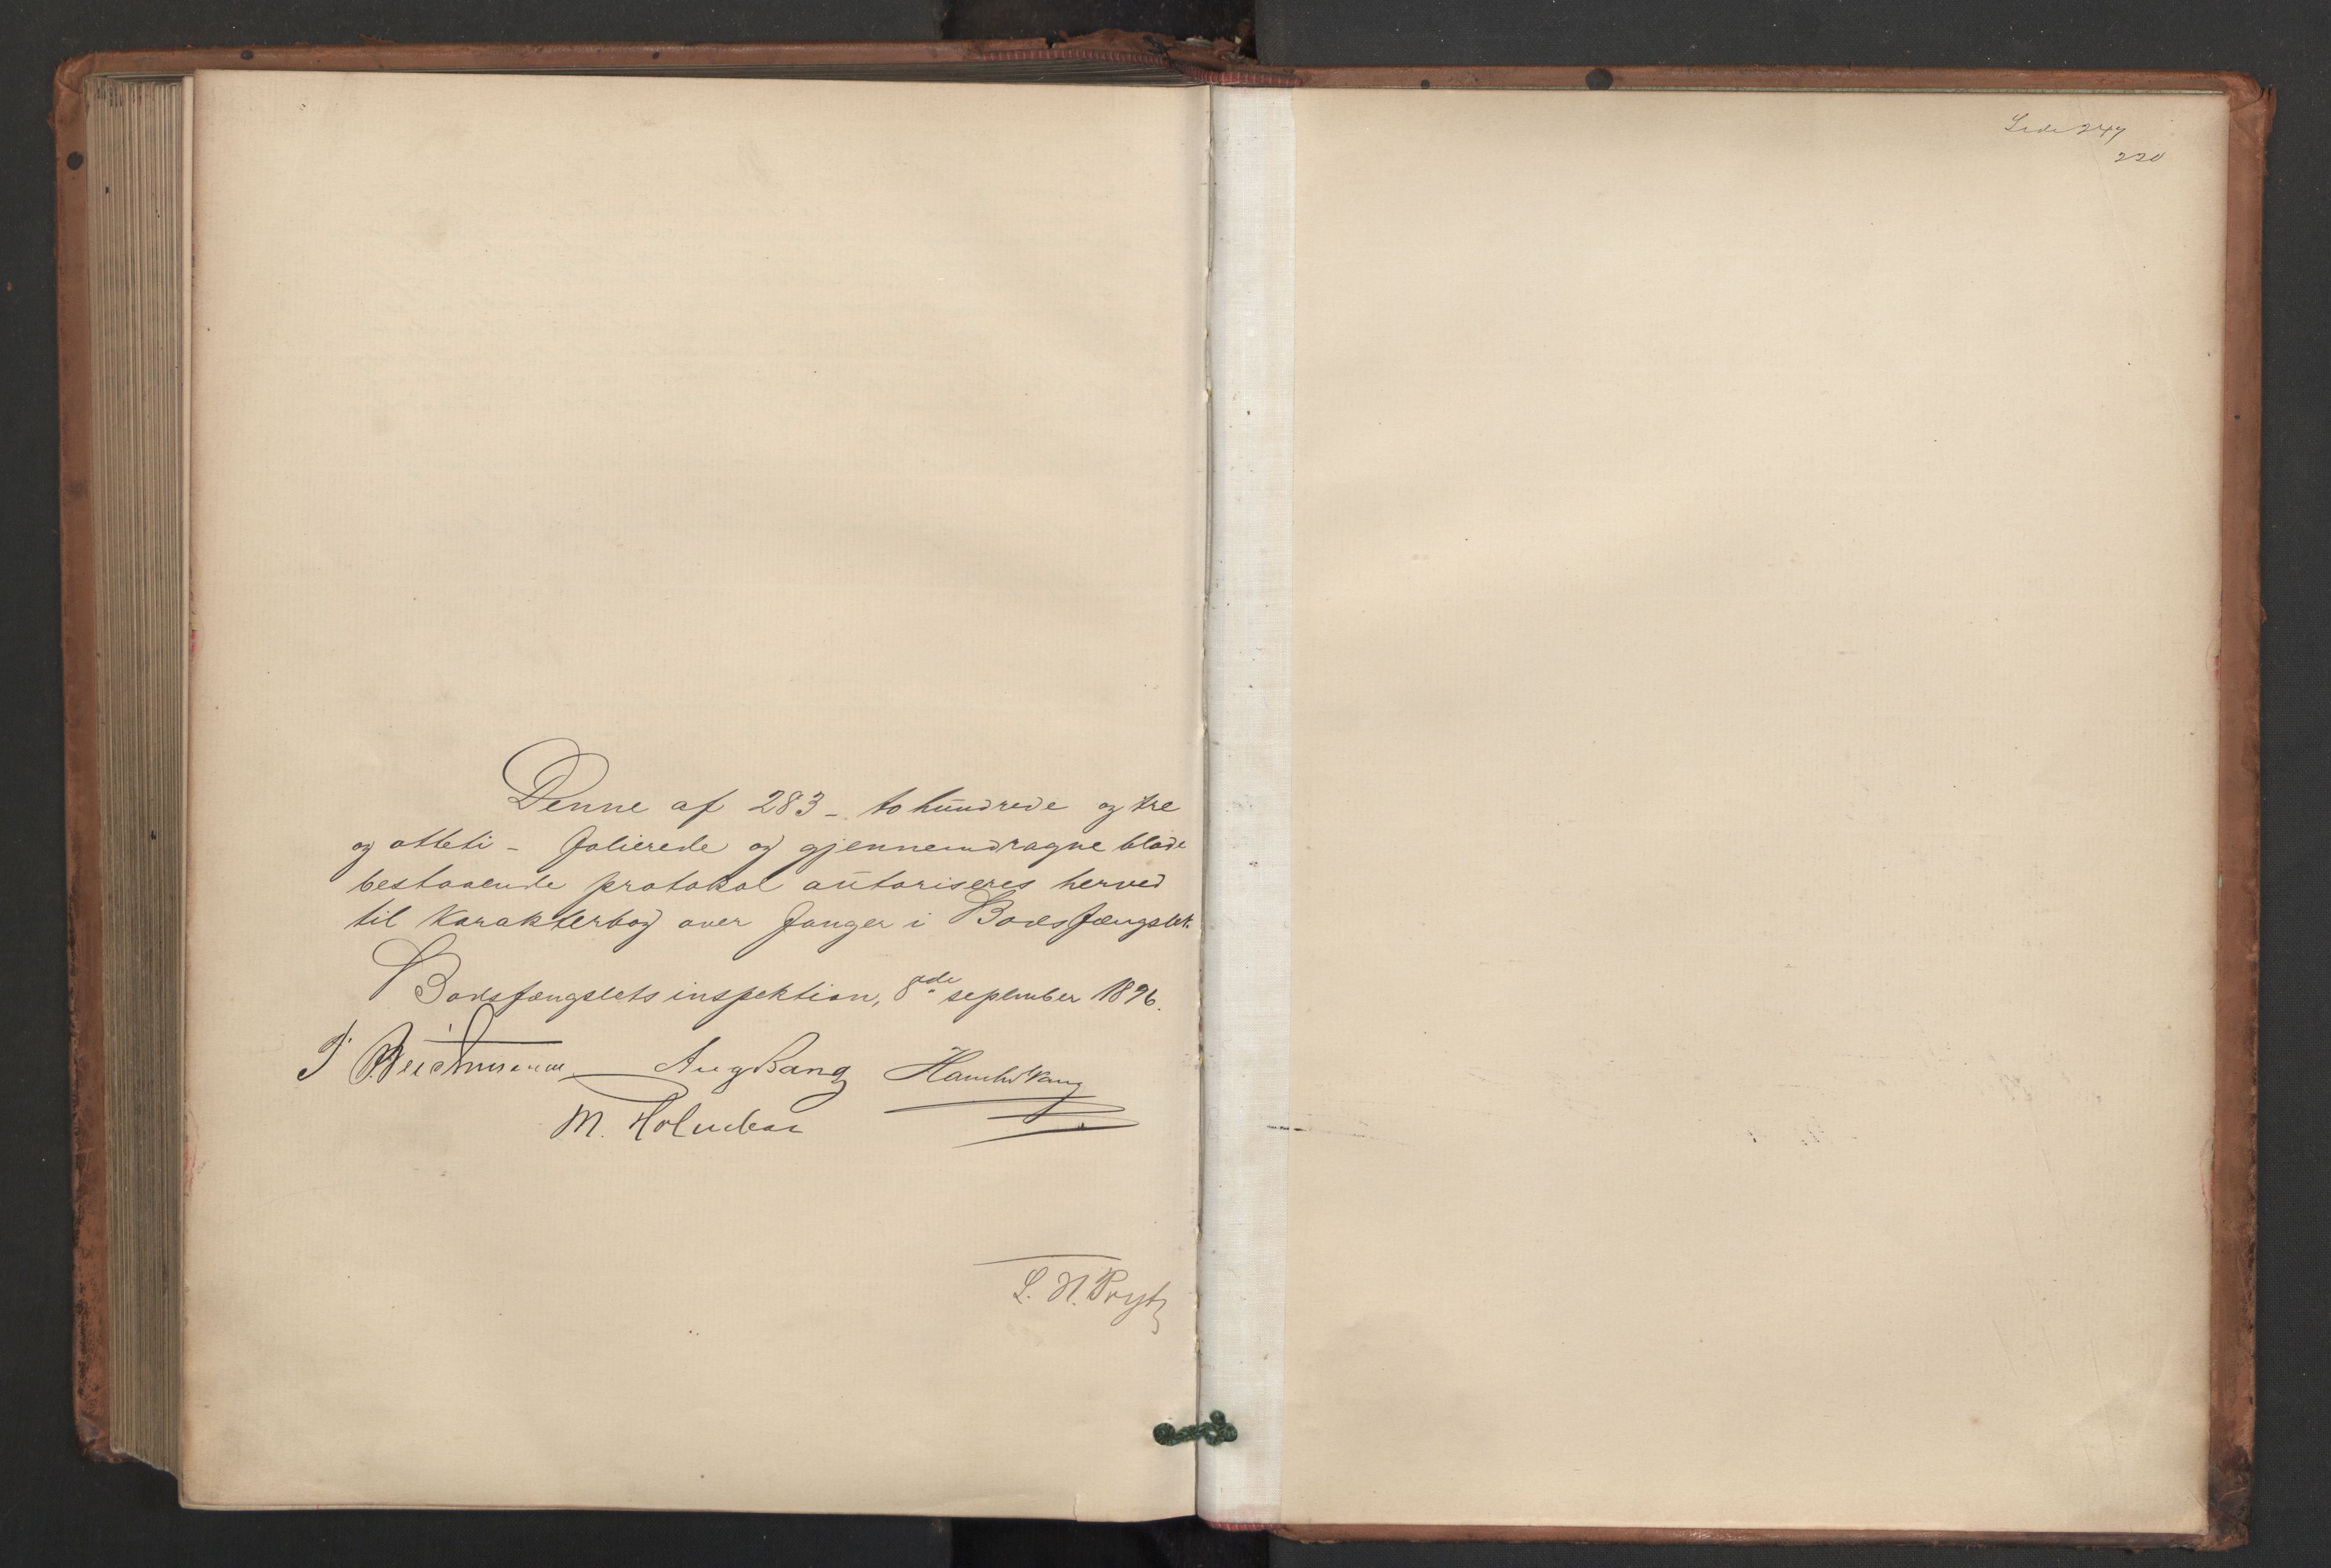 Denne af 283 - to hundrede og tre
og otteti - folierede og gjennemdragne blade
bestaaende protokol autoriseres herved
til Karakterbog over Fanger i Bodsfængslet.
Bodsfængslets inspektion, 8de september 1896.
Aug Bang
M. Holmboe
L. H. Prytz
Side 247
220